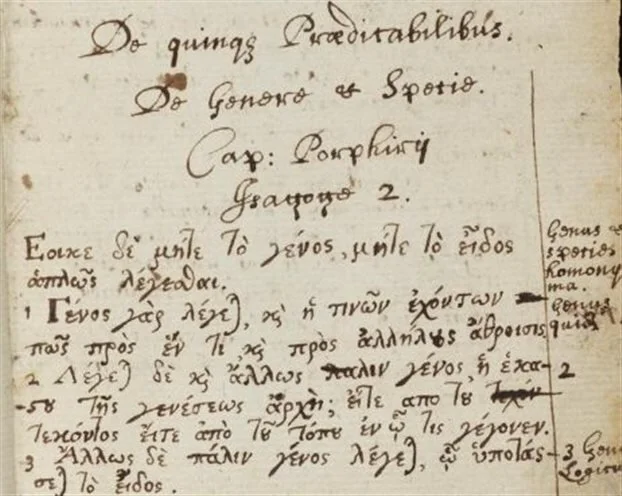 De quinqꝫ Prædicabilibus.
De Genere & Specie.
Cap: Porphirij
Isagoge 2.
Εοικε δὲ μήτε τὸ γένος, μήτε τὸ εἶδος
ἁπλῶς λέγεσθαι.
1 Γένος γὰρ λέγε), κ̀ ἡ τινῶν ἐχόντων
πῶς πρὸς ἕν τι κ̀ πρὸς ἀλλήλους ἄθροισις
2 Λέγε) δὲ κ̀ ἄλλως πάλιν γένος ἡ ἑκά-
-ϛου τῆς γενέσεως ἀρχὴ; εἴτε απο τοῦ
τεκόντος εἴτε ἀπὸ τοῦ τόπου ἐν ᾧ τις γέγονεν.
3 Ἄλλως δὲ πάλιν γένος λέγε), ᾧ ὑποτάσ-
σε) τὸ εἶδος.
Genus &
species
homony
ma.
Genus
quid
2
3 Genu
Logicu